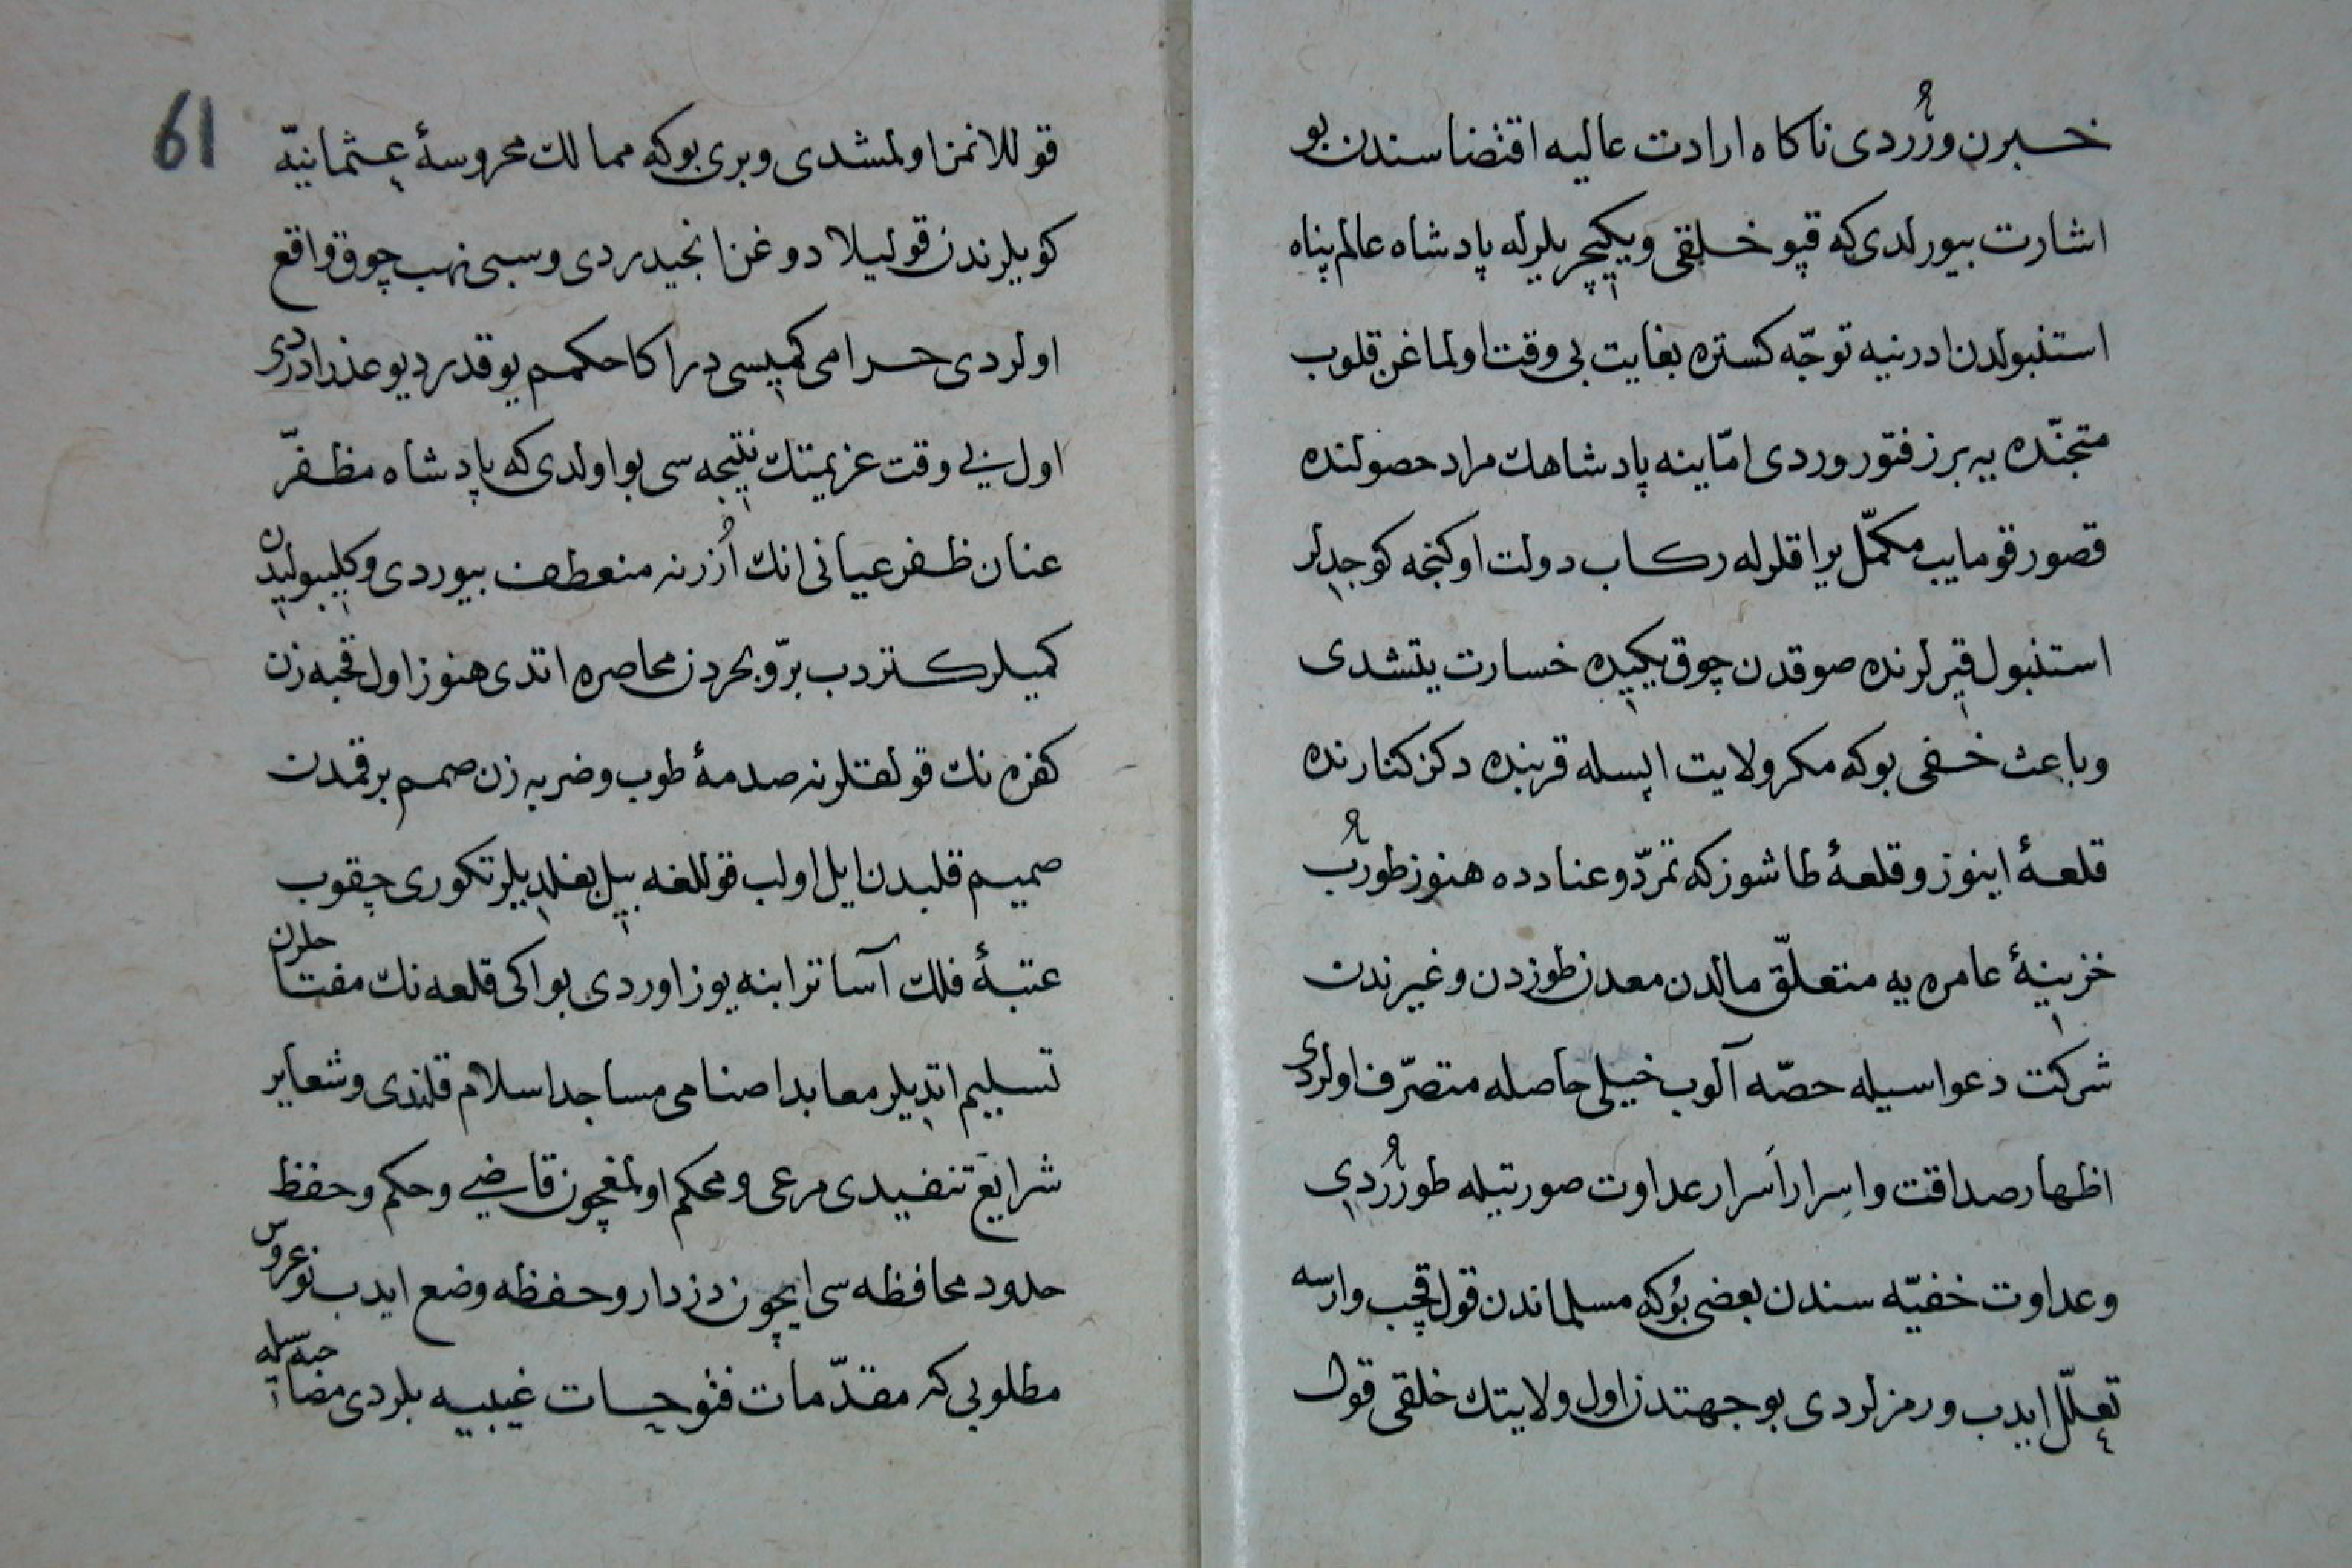 خبرن ورُردى ناكاه ارادت عاليه اقتضاسندن بو
اشارت بيورلدى كه قپو خلقى ويكيچريلرله پادشاه عالم پناه
استنبولدن ادرنيه توجّه كستره بغايت بى وقت اولماغن قلوب
متجنّده يه برز فتور وردى امّا ينه پادشاهك مراد حصولنده
قصور قومايب مكمّل يراقلرله ركاب دولت اوكنجه كوچديلر
استنبول قيرلرنده صوقدن چوق يكيده خسارت يتشدى
وباعث خفى بوكه مكر ولايت اپسله قربنده دكز كنارنده
قلعۀ اينوز وقلعۀ طاشوز كه تمرّد و عنادده هنوز طورُب
خزينۀ عامره يه متعلّق مالدن معدن طوزدن وغيرندن
شركت دعواسيله حصّه آلوب خيلى حاصله متصرّف اولردى
اظهار صداقت واِسرار اَسرار عداوت صورتيله طورُردى
وعداوت خفيّه سندن بعضى بُوكه مسلماندن قول قچب وارسه
تعلّل ايدب ورمزلردى بو جهتدن اول ولايتك خلقى قول
61
قوللانمز اولمشدى وبرى بوكه ممالك محروسۀ عثمانيّه
كويلرندن قوليلا دوغن انجيدردى وسبى نهب چوق واقع
اولردى حرامى كميسى در اكا حكمم يوقدر ديو عذر ادردى
اول بى وقت عزيمتك نتيجه سى بو اولدى كه پادشاه مظفّر
عنان ظفر عيانى انك اُزرنه منعطف بيوردى وكليبوليدن
كميلر كستردب برّ و بحردن محاصره اتدى هنوز اول قحبه زن
كفره نك قولقلرنه صدمۀ طوب وضربه زن صمم برقمدن
صميم قلبدن ايل اولب قوللغه بيل بغلديلر تكورى چقوب
عتبۀ فلك آسا ترابنه يوز اوردى بو اكى قلعه نك مفتاحلرن
تسليم اتديلر معابد اصنامى مساجد اسلام قلندى وشعاير
شرايع تنفيدى مرعى و محكم اولمغچون قاضى وحكم وحفظ
حدود محافظه سى ايچون دزدار وحفظه وضع ايدب نوعروس
مطلوبى كه مقدّمات فتوحات غيبيه بلردى مضاجعه سيله